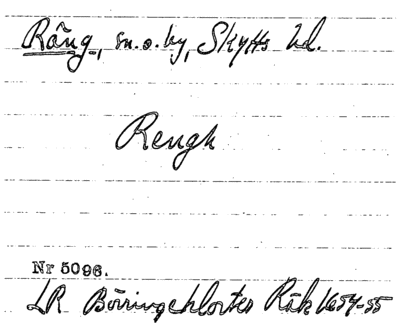 Räng, sn. o. by, Skytts hd.
Rengh
Nr 5096.
LR Börringekloster Räk 1654-55